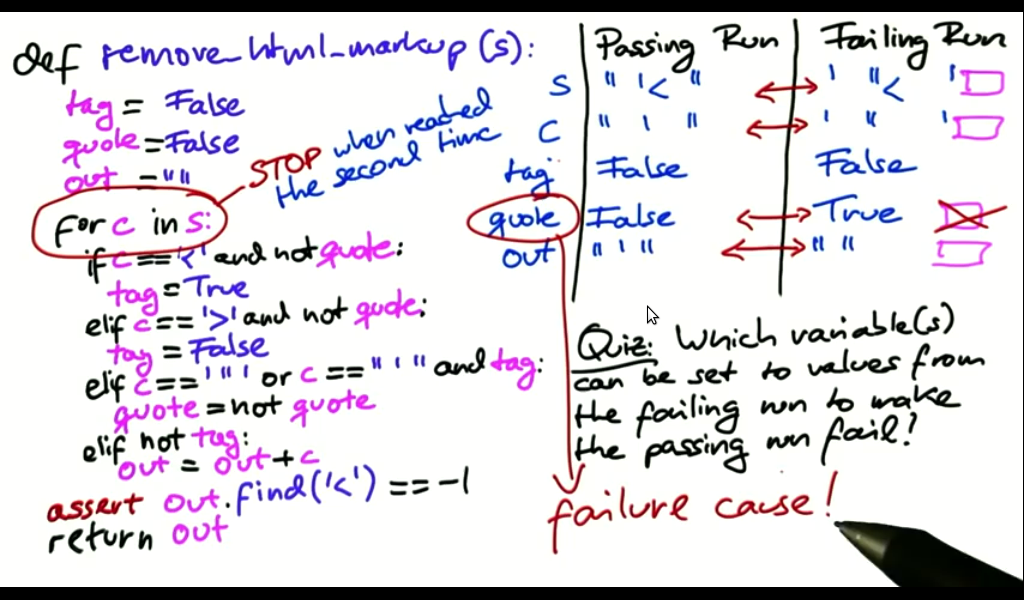 def remove_html_markup (s):
tag = False
quote = False
out = ""
for c in s:
if c == '<' and not quote:
tag = True
elif c == '>' and not quote:
tag = False
elif c == '"' or c == "'" and tag:
quote = not quote
elif not tag:
out = out + c
assert out.find('<') == -1
return out
STOP when reached
the second time
Passing Run Failing Run
s "'<" '"<'
c "'" '"'
tag False False
quote False True
out "'" ""
Quiz: Which variable(s)
can be set to values from
the failing run to make
the passing run fail?
failure cause!